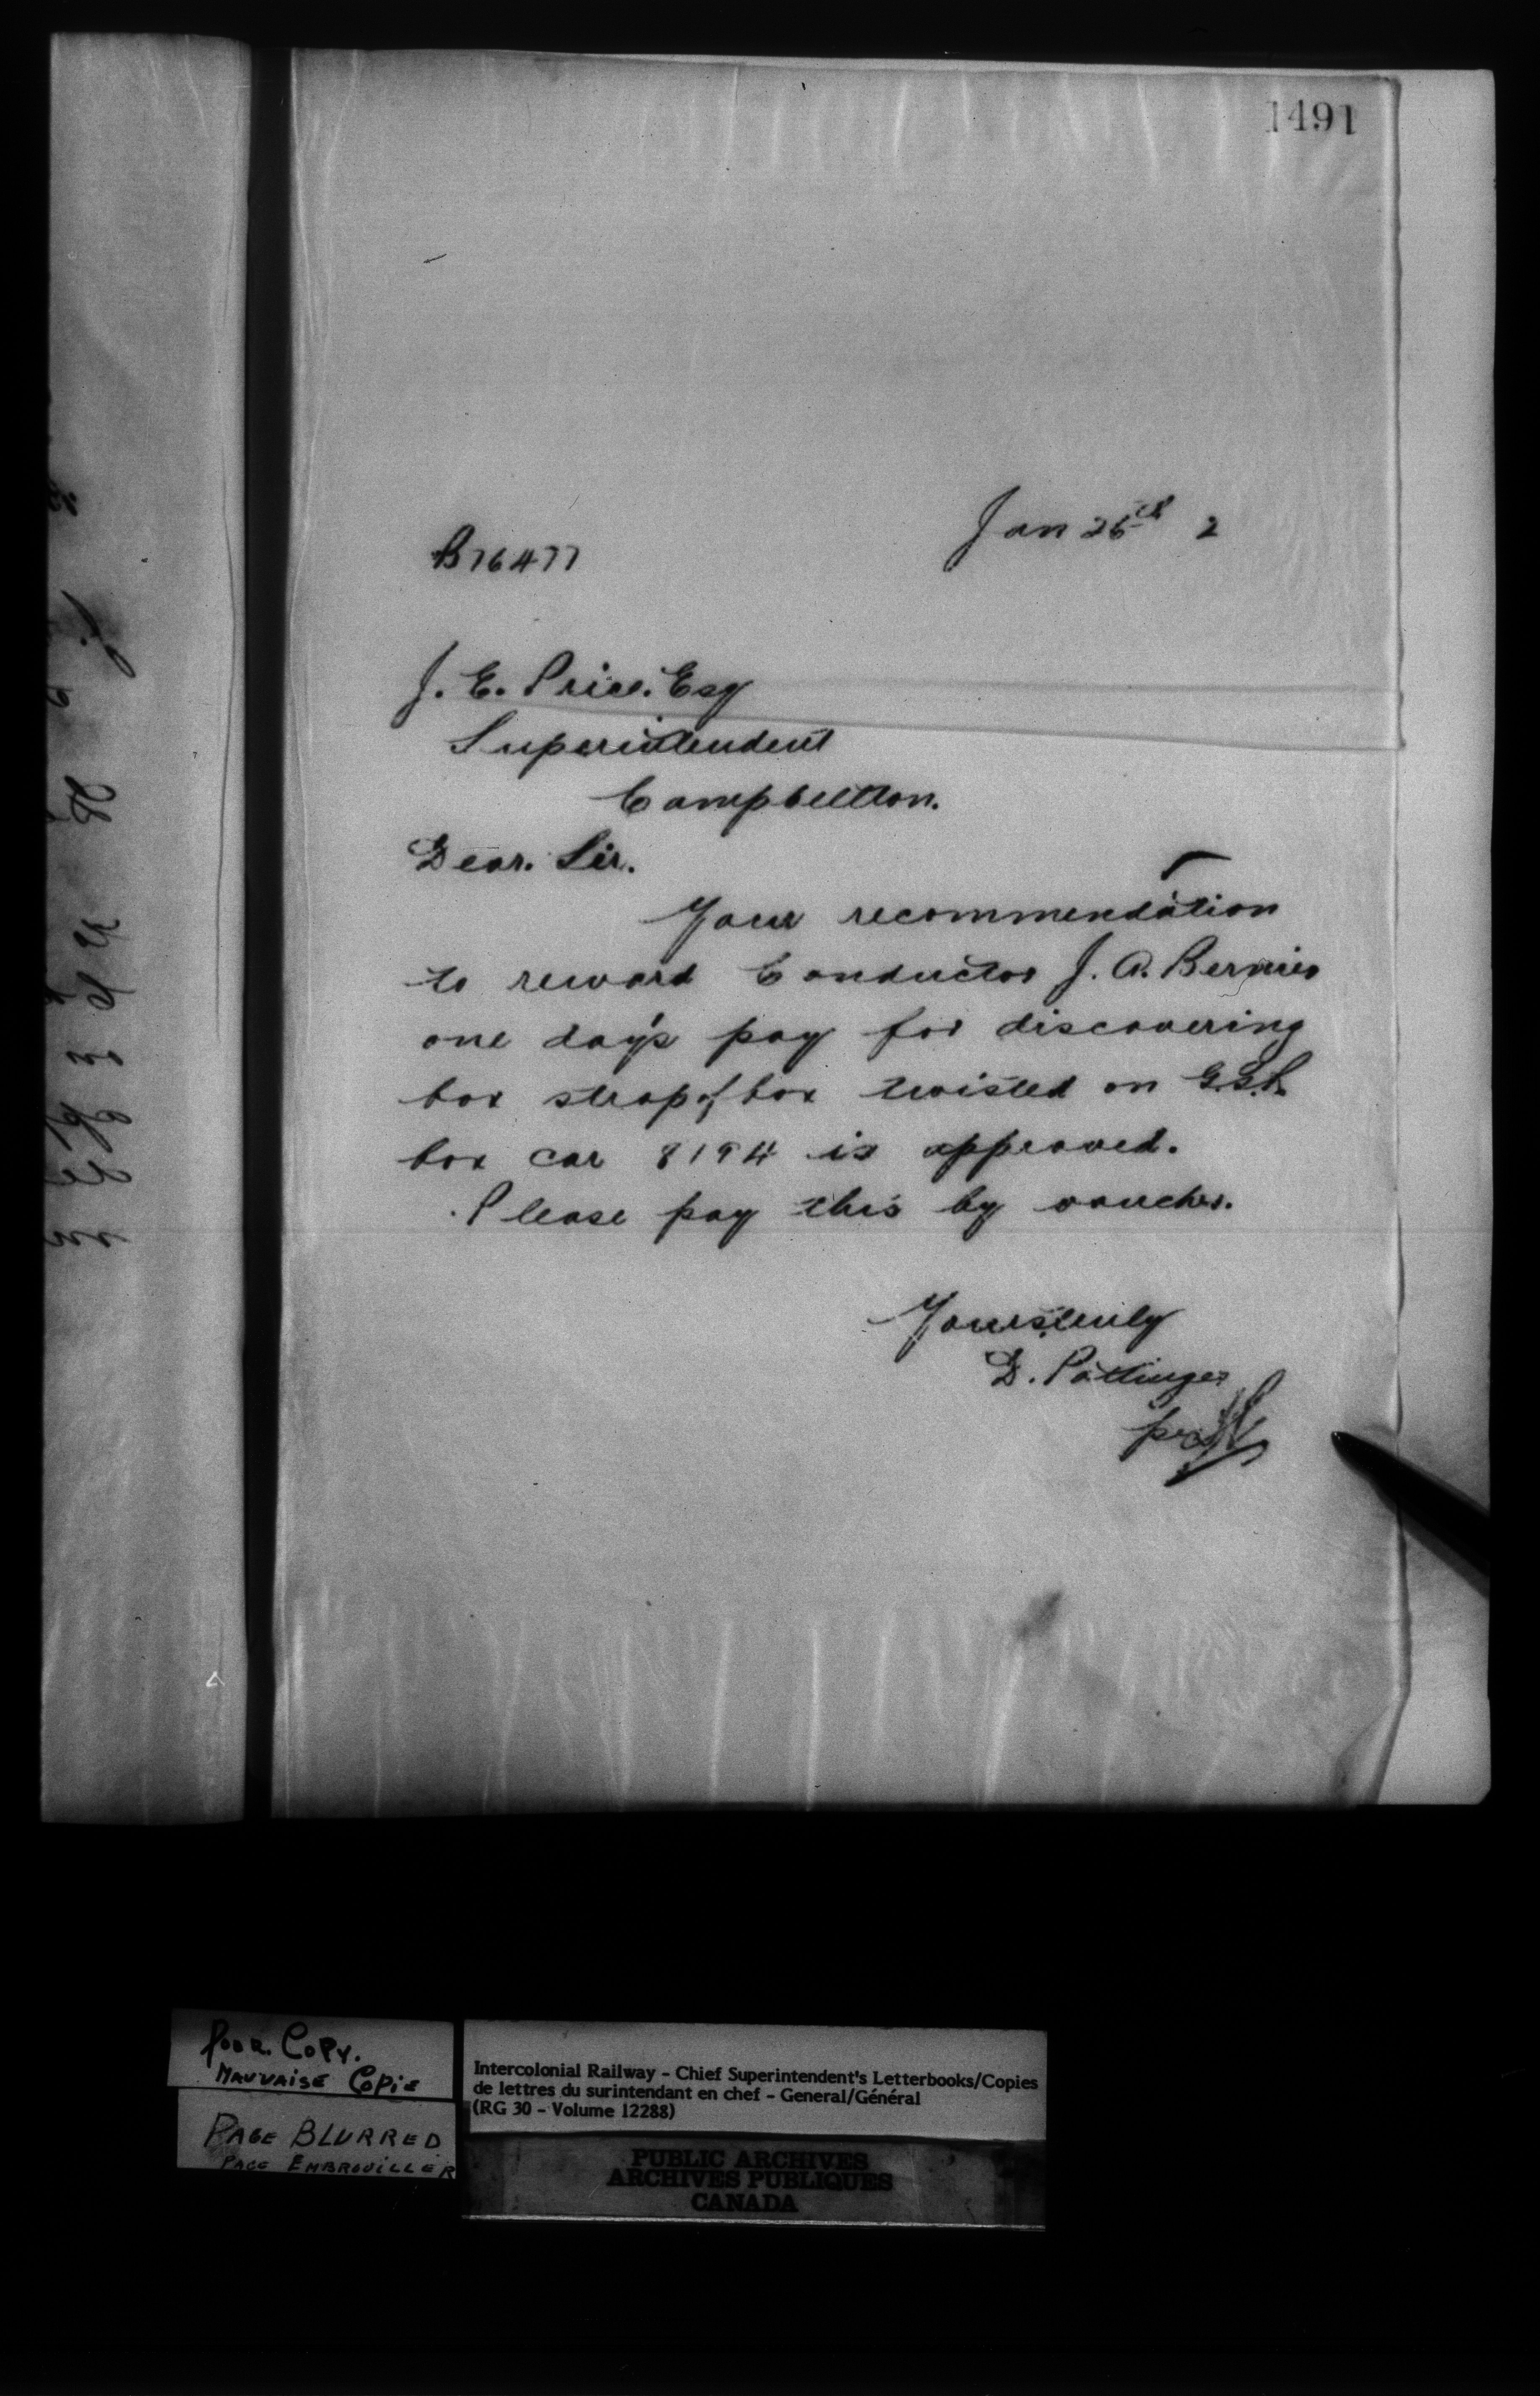 1491
Jan 25th 2
B76477
J. E. Price. Esq
Superintendent
Campbellton.
Dear. Sir.
Your recommendation
to reward Conductor J. A. Bernier
one day's pay for discovering
box strap of box twisted on
box car 8194 is approved.
Please pay this by voucher.
Yours truly
D. Pottinger
per
Poor. Copy.
Mauvaise Copie
Page Blurred
Page Embrouiller
Intercolonial Railway - Chief Superintendent's Letterbooks/Copies
de lettres du surintendant en chef - General/Général
(RG 30 - Volume 12288)
PUBLIC ARCHIVES
ARCHIVES PUBLIQUES
CANADA